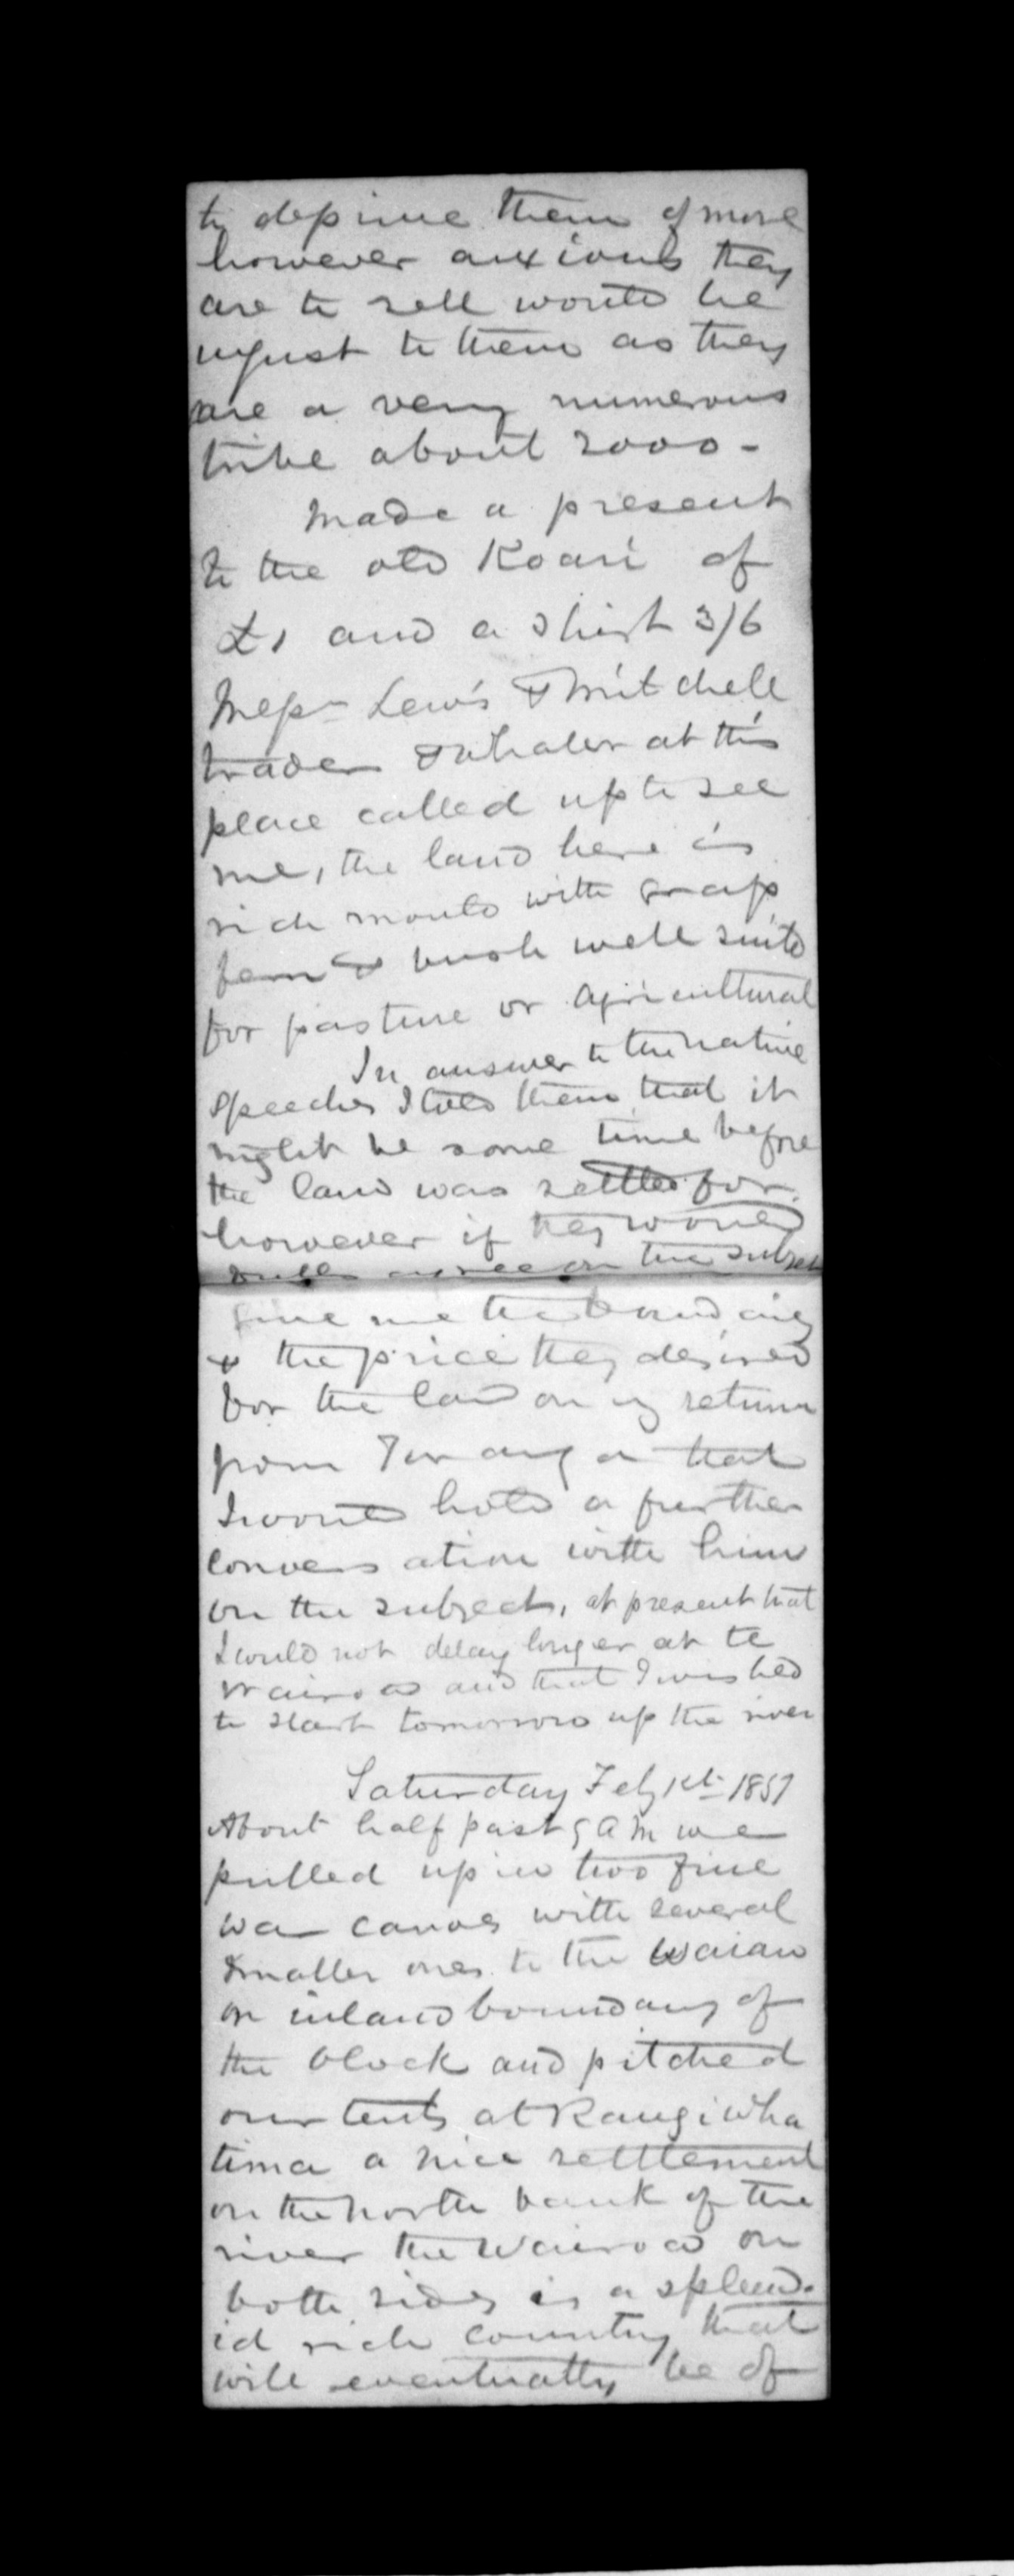 to deprive them of more
however anxious they
are to sell would be
unjust to them as they
are a very numerous
tribe about 2000 -
Made a present
to the old Koari of
£1 and a shirt 3/6
Messrs Lewis & Mitchell
trader & whaler at this
place called up to see
me, the land here is
rich mould with grass
fern & bush well suited
for pasture or agricultural
In answer to the native
speeches I told them that it
might be some time before
the land was settled for.
however if they would
agree on the subject
give me the boundary
& the price they desired
for the land on my return
from Turanga that
I would hold a further
conversation with him
on the subject, at present that
I could not delay longer at te
Wairoa and that I wished
to start tomorrow up the river
Saturday Feby 1st 1851
About half past 5 AM we
pulled up in two fine
war canoes with several
smaller ones to the Waiau
or inland boundary of
the block and pitched
our tents at Rangiwha
tima a nice settlement
on the north bank of the
river the Wairoa on
both sides is a splend-
id rich country that
will eventually be of